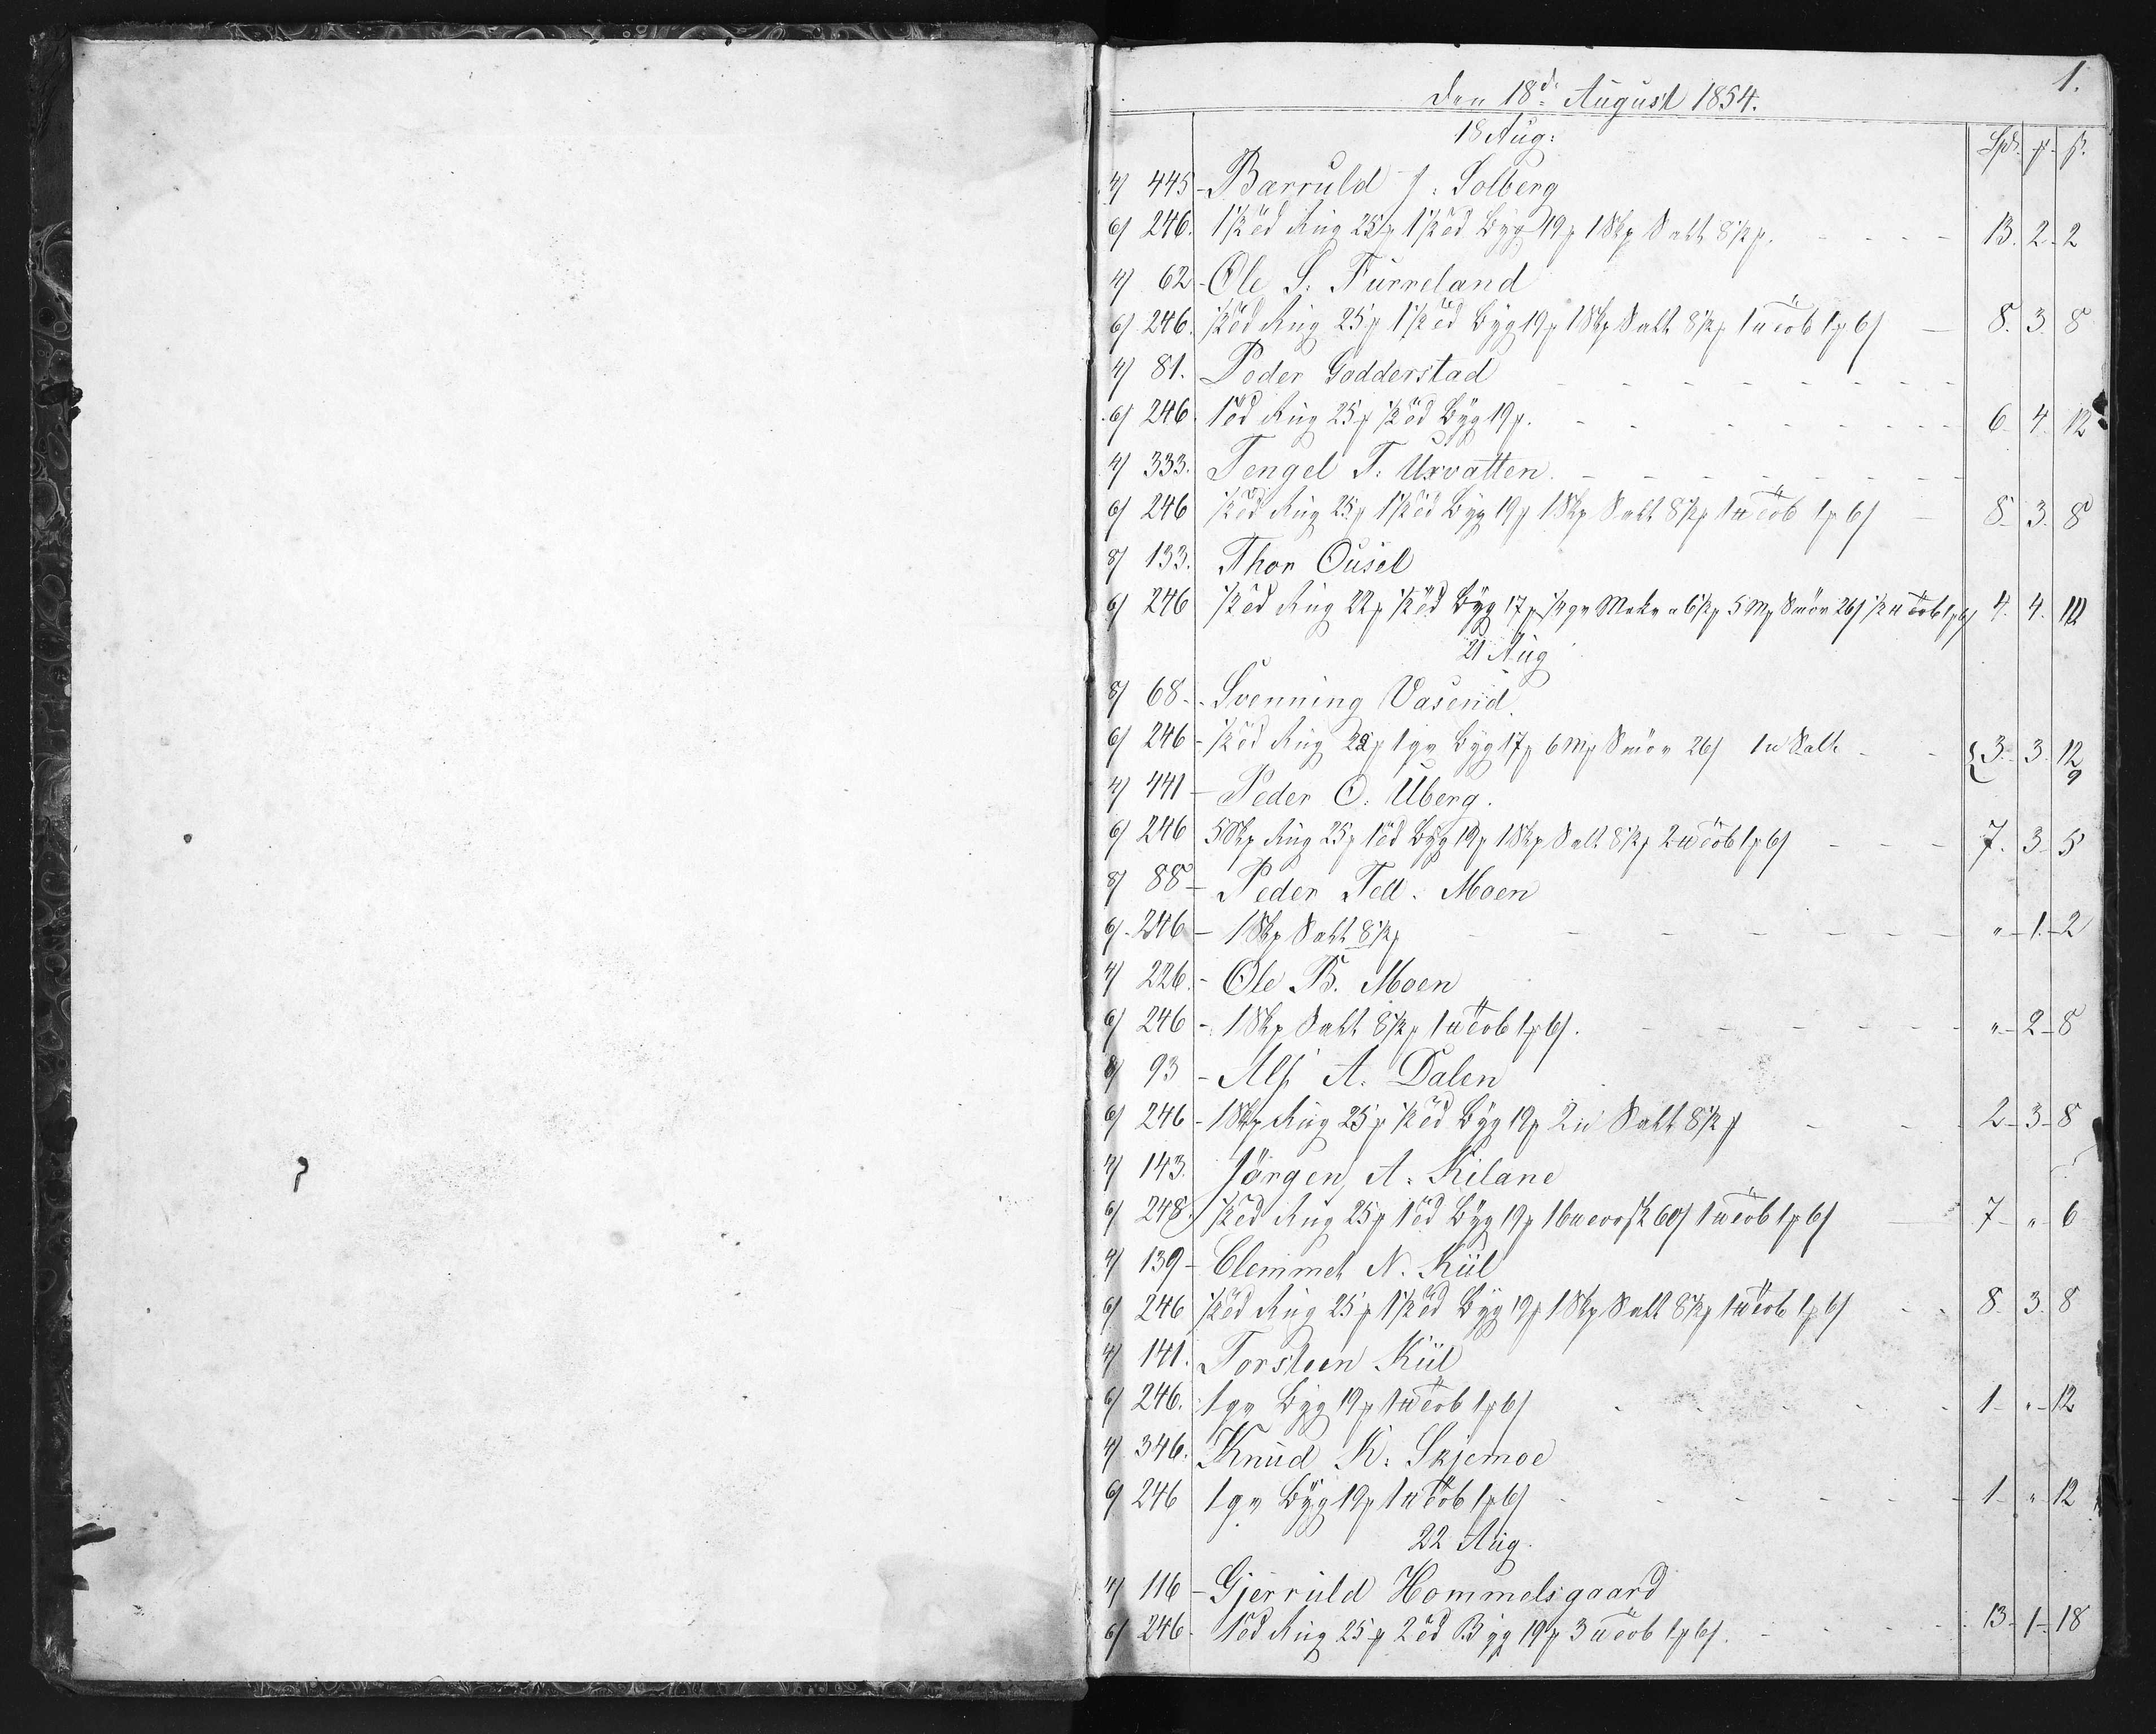 1.
Den 18de August 1854.
18 Aug: Spd. # ß.
4/ 445 - Barruld J: Solberg
6/ 246. 1½ Td Rug 25# 1½ Td Byg 19# 1 Skp Salt 8½#. - - - 13. 2 - 2
4/ 62 - Ole S. Furreland
6/ 246. ½ Td Rug 25# 1½ Td Byg 19# 1 Skp Salt 8½# 1 # Tob 1# 6/ - 8. 3. 8
4/ 81. Peder Godderstad - - - - -
6/ 246. 1 Td Rug 25# ½ Td Byg 19#. - - - - - 6. 4. 12
4/ 333. Tengel T. Uxvatten. - - - - -
6/ 246 ½ Td Rug 25# 1½ Td Byg 19# 1 Skp Salt 8½# 1 # Tob 1# 6/ - 8. 3. 8
8/ 133. Thor Ousel
6/ 246 ½ Td Rug 22# ½ Td Byg 17# 6½# 5 Mk Smör 26/ ½ # Tob 1# 6/ 4. 4.
21 Aug
8/ 68 - Svenning Vasend.
6/ 246 - ½ Td Rug 22# 1 qr Byg 17# 6 Mk Smör 26/ Salt - - 3. 3. 12
9
4/ 441 - Peder O. Uberg.
6/ 246 5 Skp Rug 25# 1 Td Byg 19# 1 Skp Salt 8½# 2 # Tob 1# 6/ - - - 7. 3 - 5
8/ 88 - Peder Tell. Moen
6/ 246 - 1 Skp Salt 8½# - - - - " - 1. - 2
4/ 226. - Ole B. Moen
6/ 246 - 1 Skp Salt 8½# 1 # Tob 1# 6/. - - - - " - 2 - 8
8/ 93 - Alf A. Dalen
6/ 246 - 1 Skp Rug 25# ½ Td Byg 19# Salt 8½# - - 2 - 3 - 8
4/ 143. Jörgen A. Kilane
6/ 248. ½ Td Rug 25# 1 Td Byg 19# 60/ 1 # Tob 1# 6/ - 7 - " - 6
4/ 139 - Clemmet N. Kiil
6/ 246 ½ Td Rug 25# 1½ Td Byg 19# 1 Skp Salt 8½# 1 # Tob 1# 6/ - - 8. 3. 8
4/ 141. Torsteen Kiil
6/ 246. 1 qr Byg 19# 1 # Tob 1# 6/ - - - - 1 - " - 12
4/ 346. Knud K: Skjemoe
6/ 246 1 qr Byg 19# 1 # Tob 1# 6/ - - - - 1 - " - 12
22 Aug.
4/ 116 - Gjerruld Hommelsgaard
6/ 246 - 1 Td Rug 25# 2 Td Byg 19# 3 # Tob 1# 6/. - - - 13 - 1 - 18